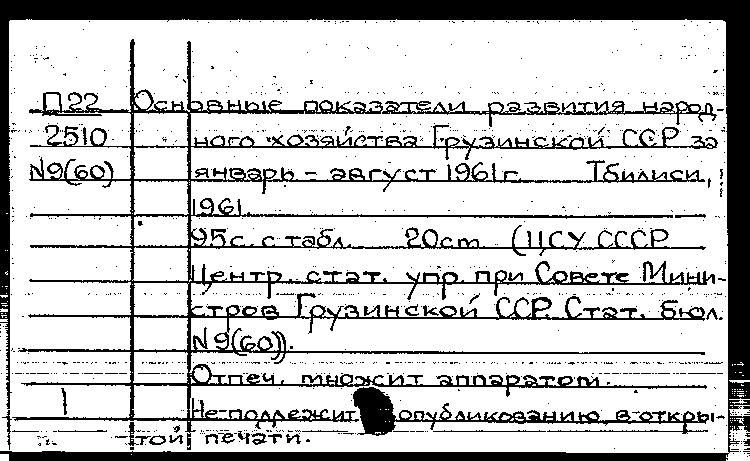 П22 Основные показатели развития народ-
2510 ного хозяйства Грузинской ССР за
N9(60) январь - август 1961г. Тбилиси,
1961.
95с. с табл. 20cm (ЦСУ СССР
Центр. стат. упр. при Совете Мини-
стров Грузинской ССР. Стат. бюл.
N9(60)).
Отпеч. множит аппаратом.
1 Не подлежит опубликованию в откры-
той печати.